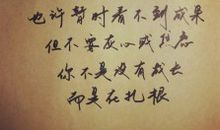 也许暂时看不到成果
但不要灰心或焦虑
你不是没有成长
而是在扎根